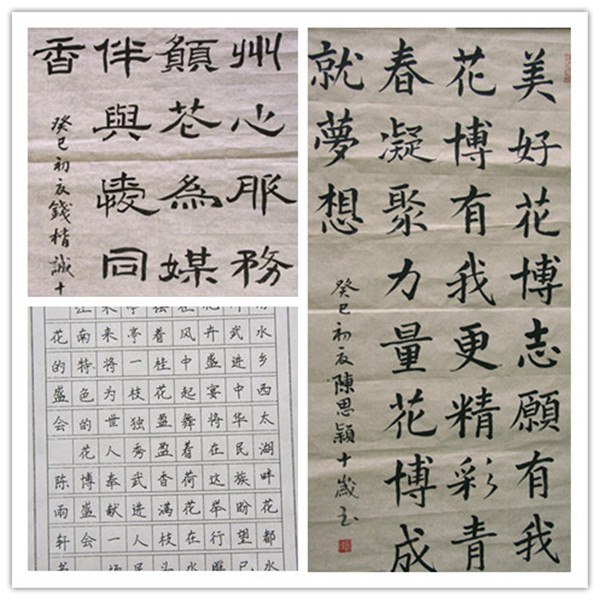 州心服務
願花為媒
伴與陵同
香
癸巳初夏錢楷誠十
美好花博志願有我
花博有我更精彩青
春凝聚力量花博成
就夢想
癸巳初夏陳思穎十歲書
水乡西太湖畔花都水
武进中华民族盼望已
卉盛宴将在这举行
风中起舞着荷花在水
着桂花盈盈香满枝头
亭一枝独秀武进人民
来将为世人奉献一场
江南特色的花博盛会
花的盛会 陈雨轩